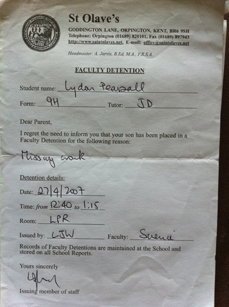 St Olave's
GODDINGTON LANE, ORPINGTON, KENT, BR6 9SH
Telephone: Orpington (01689)
www.saintolaves.net, E-mail: office@saintolaves.net
Headmaster: A. Jarvis, B.Ed. M.A., F.R.S.A.
FACULTY DETENTION
Student name: Lydon Pearsall
Form: 9H Tutor: JD
Dear Parent,
I regret to inform you that your son has been placed in a
Faculty Detention for the following reason:
Missing work
Detention details:
Date: 27/4/2007
Time: from 12:40 to 1:15
Room: LPR
Issued by: CJW Faculty: Science
Records of Faculty Detentions are maintained at the School and
stored on all School Reports.
Yours sincerely
Issuing member of staff